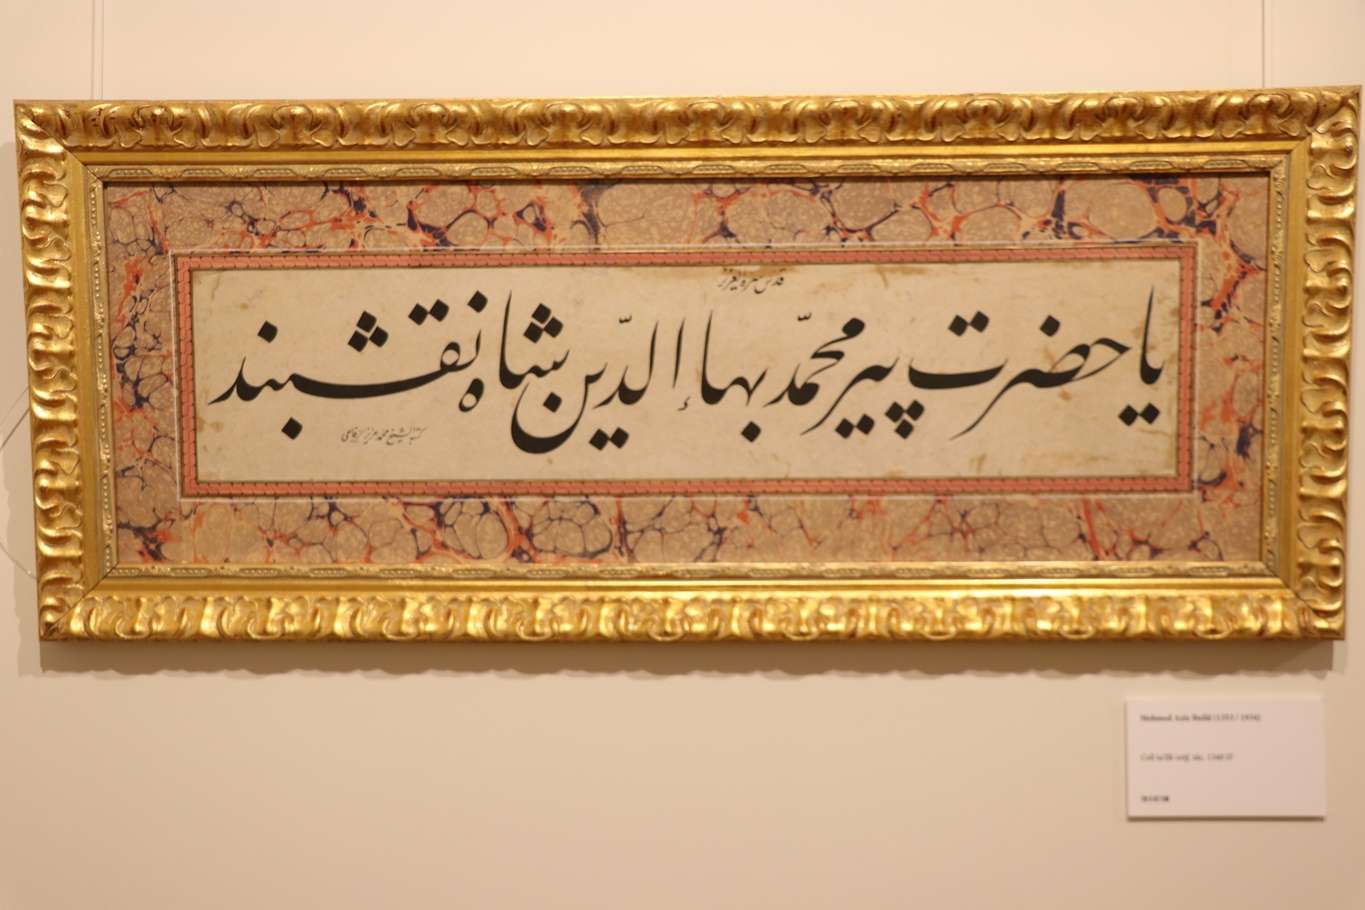 قدس سره العزيز
يا حضرت پير محمّد بهاء الدّين شاه نقشبند
كتبه الشيخ محمد عزيز الرفاعي
Mehmed Aziz Rufâî (1353 / 1934)
Celî ta'lik